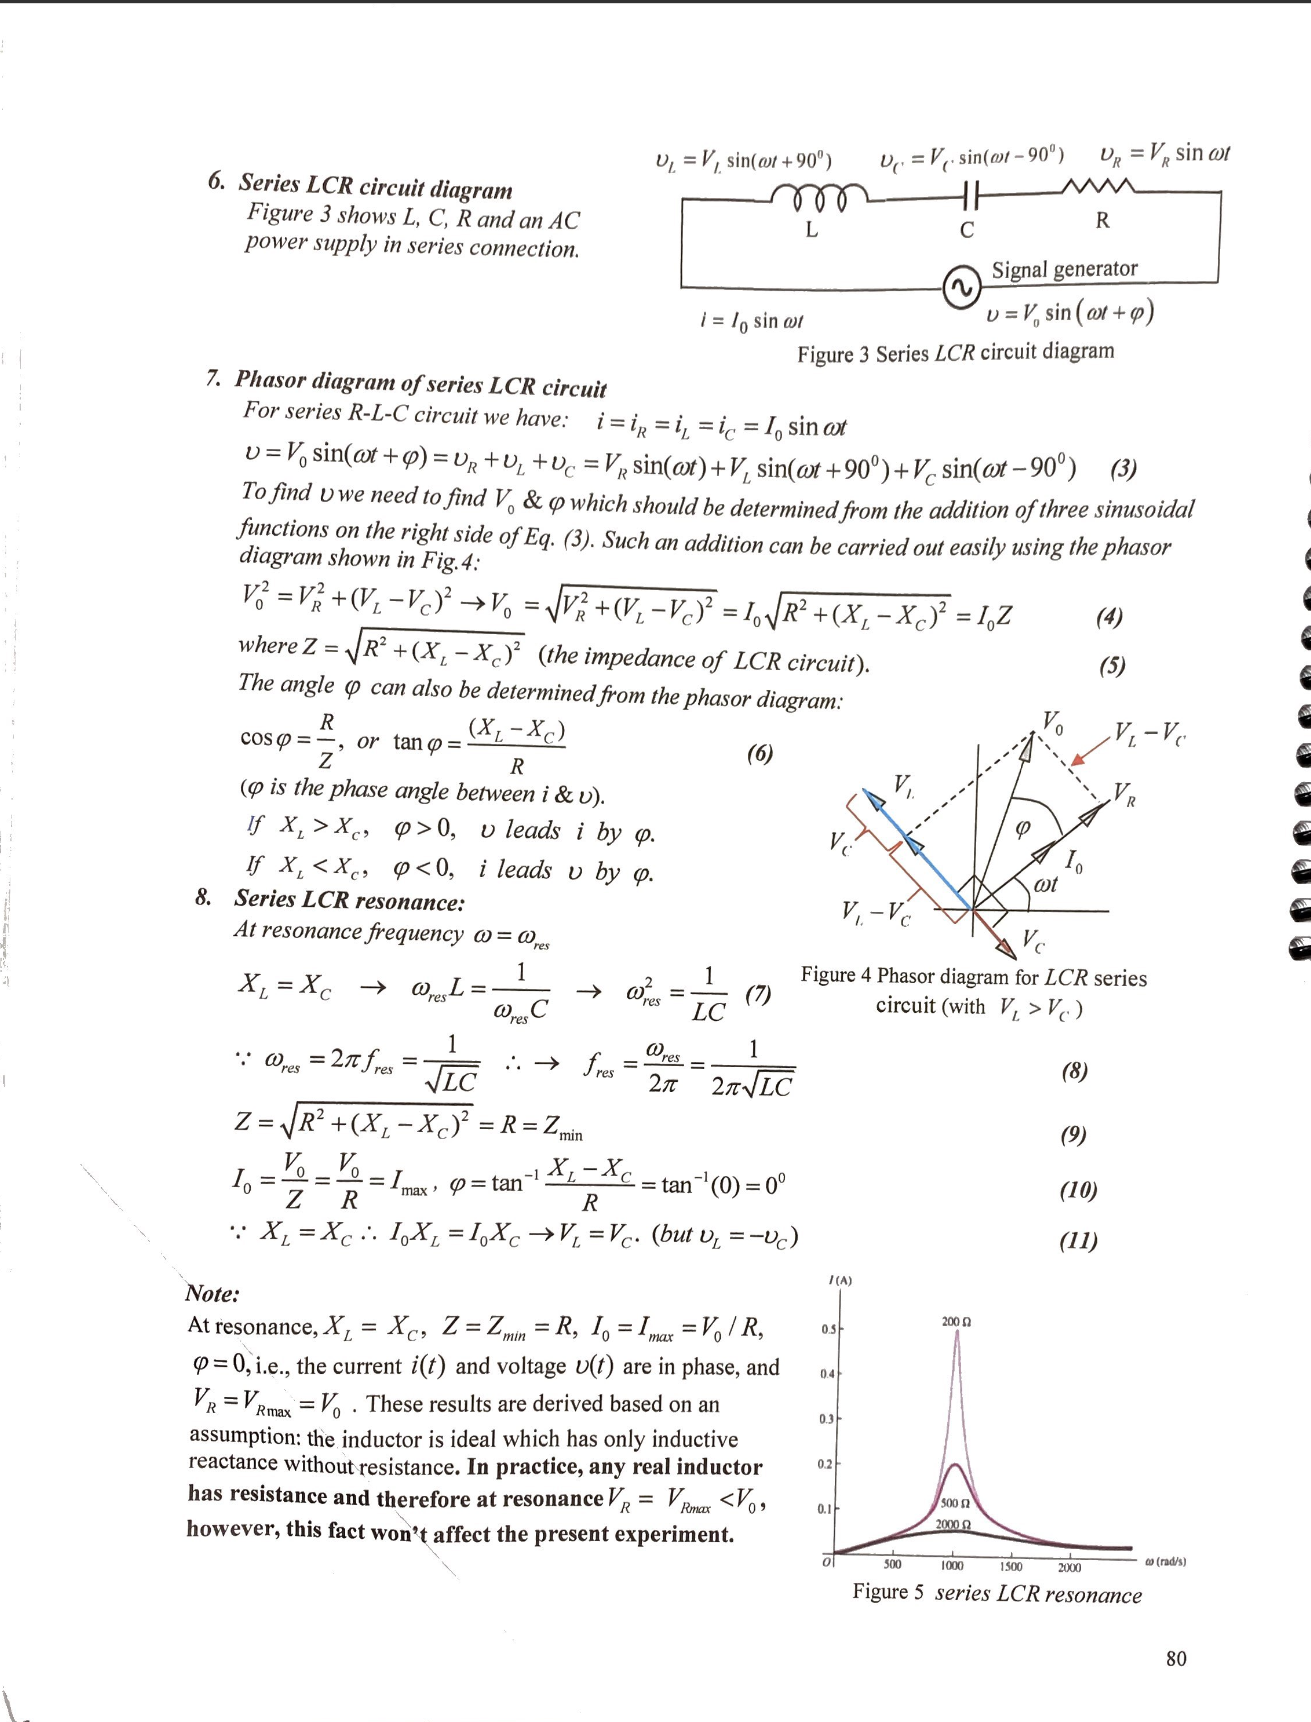 υ_L = V_L sin(ωt + 90⁰) υ_C = V_C sin(ωt − 90⁰) υ_R = V_R sin ωt
6. Series LCR circuit diagram
Figure 3 shows L, C, R and an AC
power supply in series connection.
L C R
Signal generator
i = I₀ sin ωt υ = V₀ sin(ωt + φ)
Figure 3 Series LCR circuit diagram
7. Phasor diagram of series LCR circuit
For series R-L-C circuit we have: i = i_R = i_L = i_C = I₀ sin ωt
υ = V₀ sin(ωt + φ) = υ_R + υ_L + υ_C = V_R sin(ωt) + V_L sin(ωt + 90⁰) + V_C sin(ωt − 90⁰) (3)
To find υ we need to find V₀ & φ which should be determined from the addition of three sinusoidal
functions on the right side of Eq. (3). Such an addition can be carried out easily using the phasor
diagram shown in Fig.4:
V₀² = V_R² + (V_L − V_C)² → V₀ = √(V_R² + (V_L − V_C)²) = I₀√(R² + (X_L − X_C)²) = I₀Z (4)
where Z = √(R² + (X_L − X_C)²) (the impedance of LCR circuit). (5)
The angle φ can also be determined from the phasor diagram:
cos φ = R/Z, or tan φ = (X_L − X_C)/R (6)
(φ is the phase angle between i & υ).
If X_L > X_C, φ > 0, υ leads i by φ.
If X_L < X_C, φ < 0, i leads υ by φ.
V₀ V_L − V_C
V_L V_R
V_C φ I₀
ωt
V_L − V_C V_C
Figure 4 Phasor diagram for LCR series
circuit (with V_L > V_C)
8. Series LCR resonance:
At resonance frequency ω = ω_res
X_L = X_C → ω_res L = 1/(ω_res C) → ω²_res = 1/LC (7)
∵ ω_res = 2π f_res = 1/√LC ∴ → f_res = ω_res/2π = 1/(2π√LC) (8)
Z = √(R² + (X_L − X_C)²) = R = Z_min (9)
I₀ = V₀/Z = V₀/R = I_max, φ = tan⁻¹ (X_L − X_C)/R = tan⁻¹(0) = 0⁰ (10)
∵ X_L = X_C ∴ I₀X_L = I₀X_C → V_L = V_C. (but υ_L = −υ_C) (11)
Note:
At resonance, X_L = X_C, Z = Z_min = R, I₀ = I_max = V₀ / R,
φ = 0, i.e., the current i(t) and voltage υ(t) are in phase, and
V_R = V_Rmax = V₀ . These results are derived based on an
assumption: the inductor is ideal which has only inductive
reactance without resistance. In practice, any real inductor
has resistance and therefore at resonance V_R = V_Rmax < V₀,
however, this fact won't affect the present experiment.
I (A)
0.5
0.4
0.3
0.2
0.1
200 Ω
500 Ω
2000 Ω
O 500 1000 1500 2000 ω (rad/s)
Figure 5 series LCR resonance
80